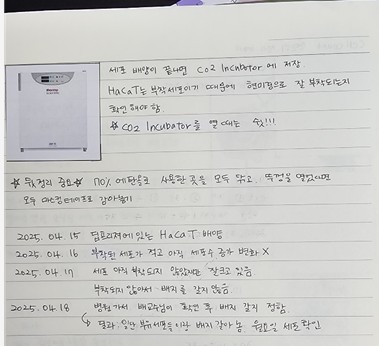 세포 배양이 끝나면 CO2 Incubator에 저장
HaCaT는 부착세포이기 때문에 현미경으로 잘 부착되는지
확인해야 함.
☆ CO2 Incubator를 열 때는
☆ 뒷정리 중요☆ 70% 에탄올로 사용한 곳을 모두 닦고, 뚜껑을 열었다면
모두 마스킹테이프로 감아놓기
2025. 04. 15 딥프리저에 있는 HaCaT 배양
2025. 04. 16 부착된 세포가 적고 아직 세포수 증가 변화 X
2025. 04. 17 세포 아직 부착되지 않았지만 잘크고 있음
부착되지 않아서 배지를 갈지 않음
2025. 04. 18 병원가서 교수님이 확인 후 배지 갈지 정함
결과: 일단 부유세포들이랑 배지 갈아놓음. 월요일 세포확인